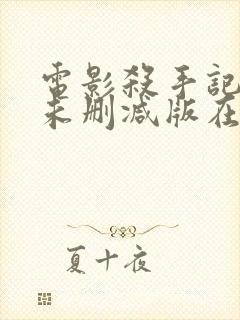 電影殺手記
未刪減版在
夏十夜